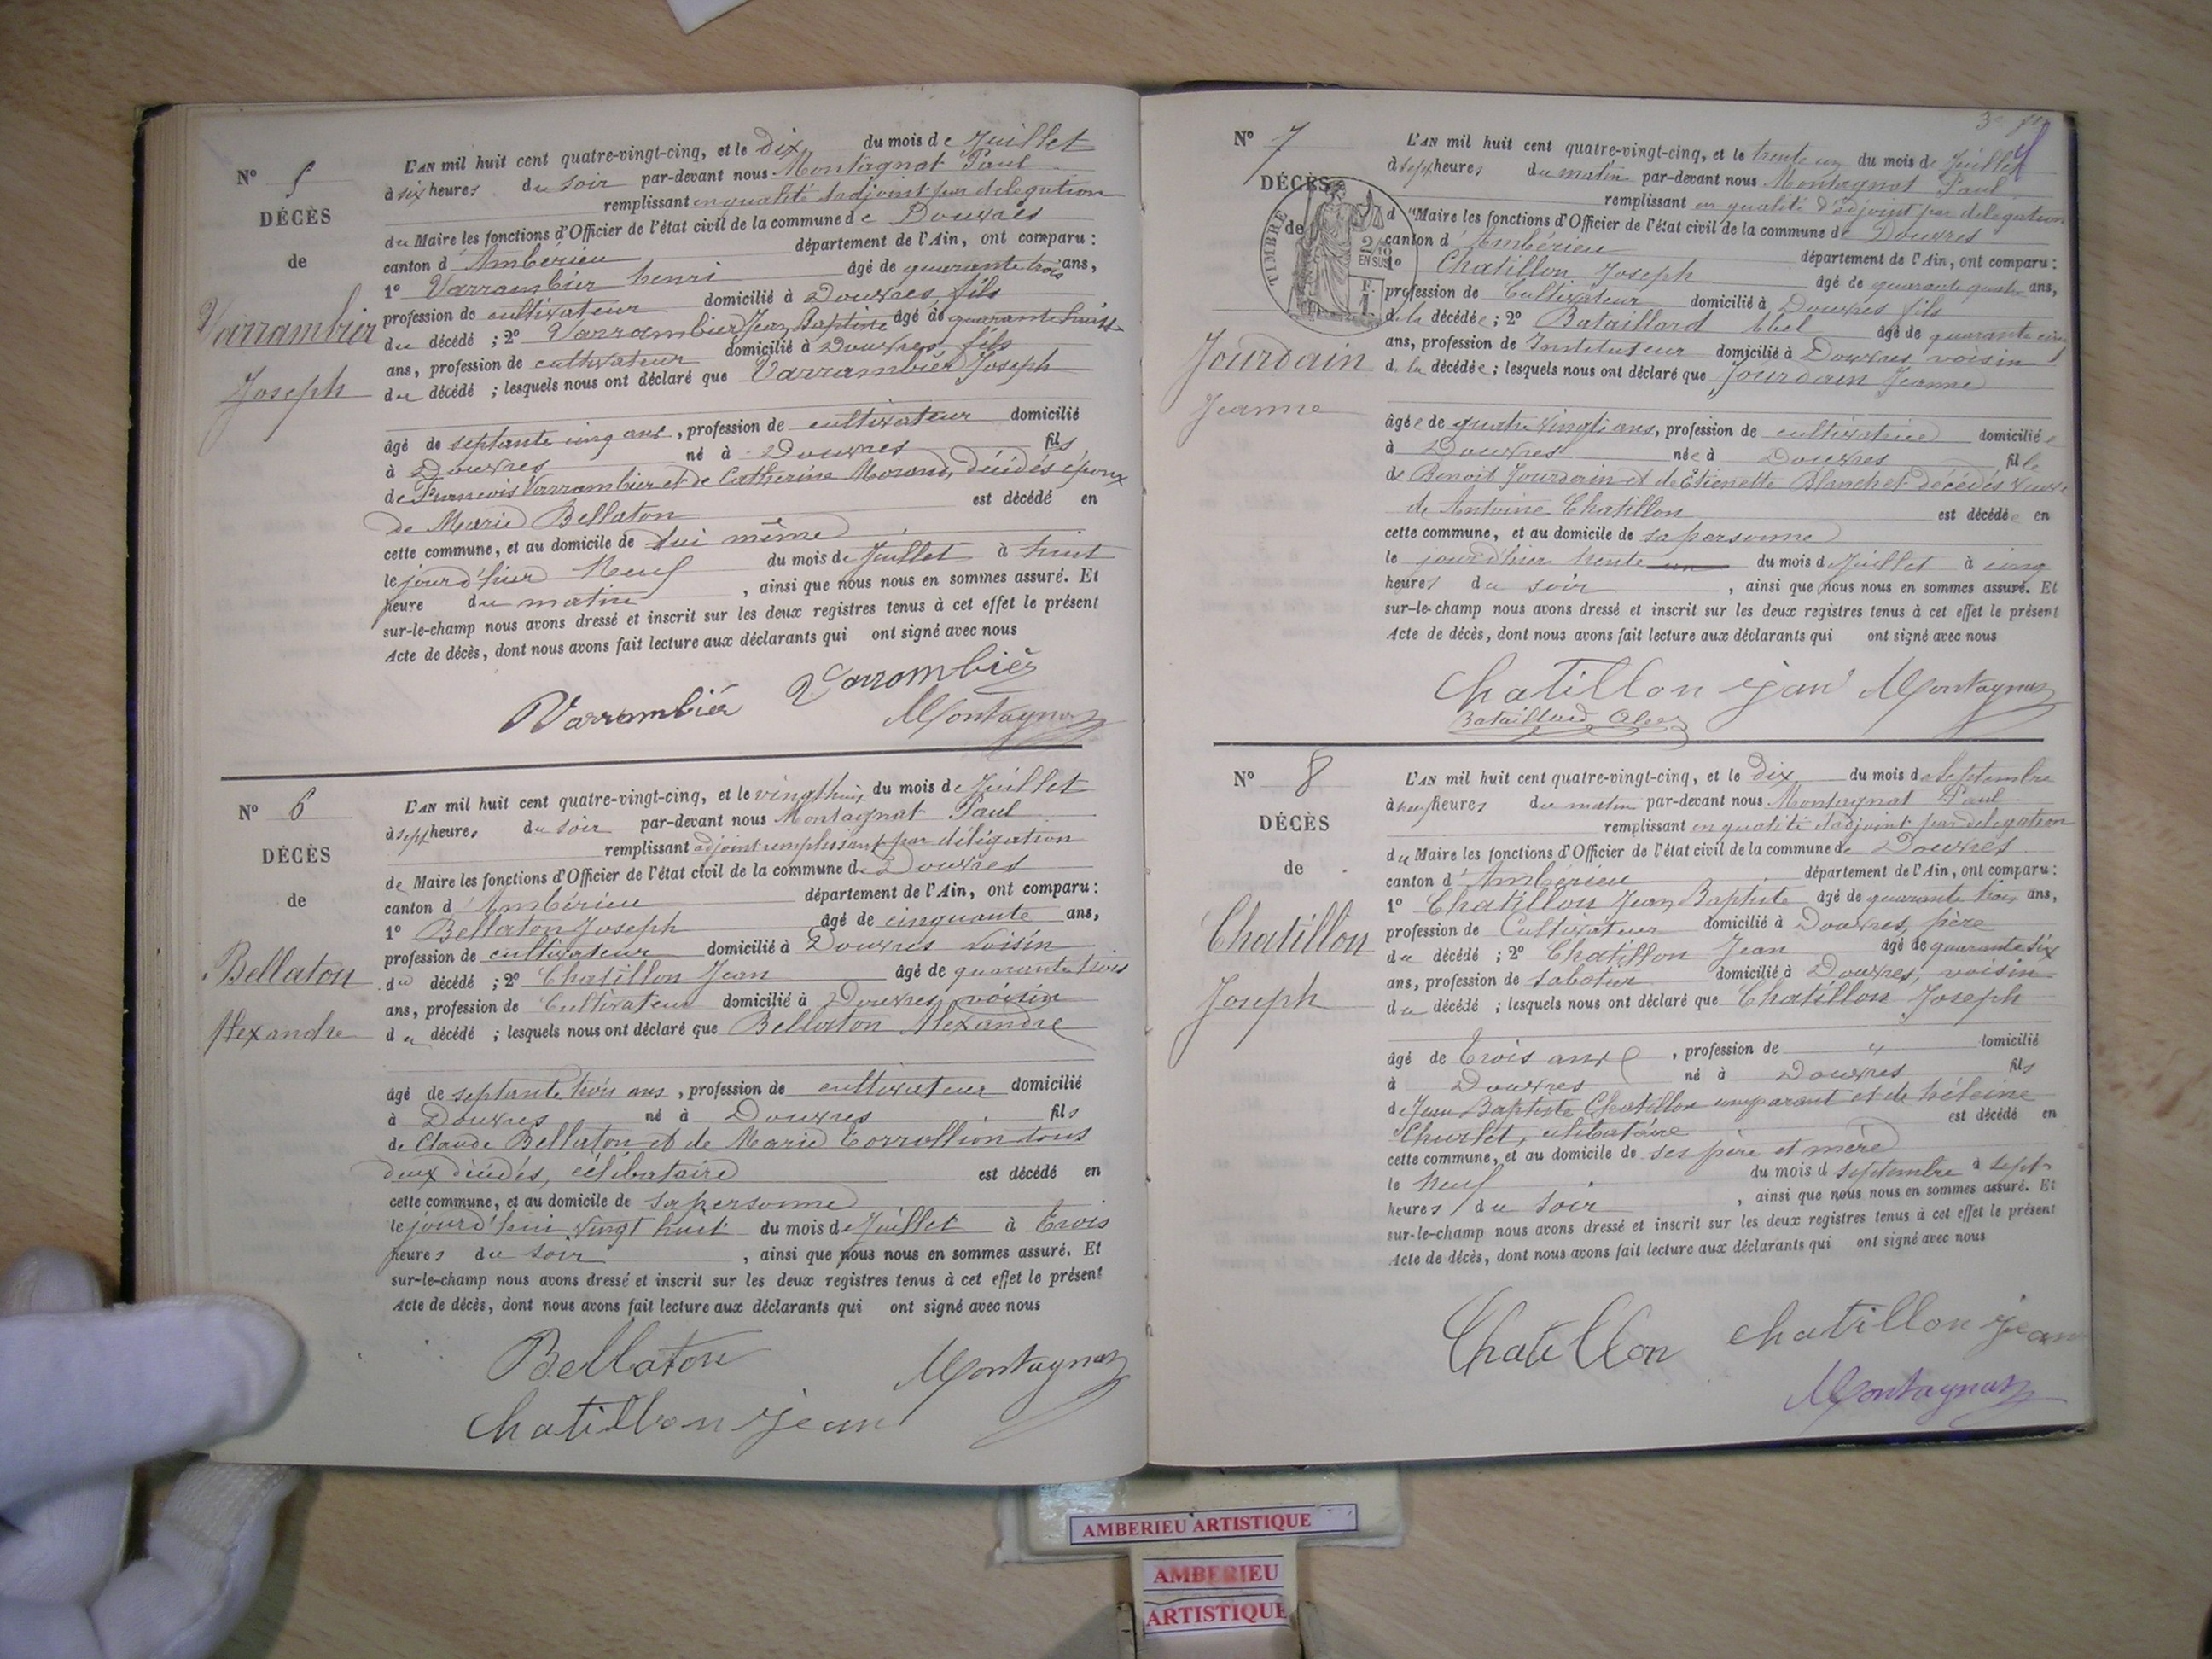 N° 5
DÉCÈS
de
Varrambier
Joseph
L'AN mil huit cent quatre-vingt-cinq, et le dix du mois de Juillet
à six heures du soir par-devant nous Montagnat Paul
remplissant en qualité d'adjoint par delegation
du Maire les fonctions d'Officier de l'état civil de la commune de Douvres
canton d'Ambérieu département de l'Ain, ont comparu :
1° Varrambier henri âgé de quarante trois ans,
profession de cultivateur domicilié à Douvres, fils
du décédé ; 2° Varrambier Jean Baptiste âgé de quarante huit
ans, profession de cultivateur domicilié à Douvres fils
du décédé ; lesquels nous ont déclaré que Varrambier Joseph
âgé de septante cinq ans, profession de cultivateur domicilié
à Douvres né à Douvres fils
de Francois Varrambier et de Catherine Morand, décédés époux
de Marie Bellaton est décédé en
cette commune, et au domicile de lui même
le jourd'hier Neuf du mois de Juillet à huit
heure du matin, ainsi que nous nous en sommes assuré. Et
sur-le-champ nous avons dressé et inscrit sur les deux registres tenus à cet effet le présent
Acte de décès, dont nous avons fait lecture aux déclarants qui ont signé avec nous
Varrambier
Varrambier
Montagnat
N° 6
DÉCÈS
de
Bellaton
Alexandre
L'AN mil huit cent quatre-vingt-cinq, et le vingt huit du mois de Juillet
à sept heures du soir par-devant nous Montagnat Paul
remplissant adjoint remplissant par délégation
de Maire les fonctions d'Officier de l'état civil de la commune de Douvres
canton d'Ambérieu département de l'Ain, ont comparu :
1° Bellaton Joseph âgé de cinquante ans,
profession de cultivateur domicilié à Douvres voisin
du décédé ; 2° Chatillon Jean âgé de quarante trois
ans, profession de Cultivateur domicilié à Douvres, voisin
du décédé ; lesquels nous ont déclaré que Bellaton Alexandre
âgé de septante trois ans, profession de cultivateur domicilié
à Douvres né à Douvres fils
de Claude Bellaton et de Marie tous
deux décédés, célibataire est décédé en
cette commune, et au domicile de sa personne
le jourd'hui vingt huit du mois de Juillet à Trois
heures du soir, ainsi que nous nous en sommes assuré. Et
sur-le-champ nous avons dressé et inscrit sur les deux registres tenus à cet effet le présent
Acte de décès, dont nous avons fait lecture aux déclarants qui ont signé avec nous
Bellaton
Montagnat
Chatillon jean
N° 7
DÉCÈS
de
TIMBRE
Jourdain
Jeanne
L'AN mil huit cent quatre-vingt-cinq, et le trente un du mois de Juillet
à sept heures du matin par-devant nous Montagnat Paul
remplissant en qualité d'adjoint par delegation
du Maire les fonctions d'Officier de l'état civil de la commune de Douvres
canton d'Ambérieu département de l'Ain, ont comparu :
1° Chatillon Joseph âgé de quarante quatre ans,
profession de Cultivateur domicilié à Douvres fils
de la décédée ; 2° Bataillard Abel âgé de quarante cinq
ans, profession de Instituteur domicilié à Douvres voisin
de la décédée ; lesquels nous ont déclaré que Jourdain Jeanne
âgée de quatre vingts ans, profession de cultivatrice domiciliée
à Douvres née à Douvres fille
de Benoit Jourdain et de Etienette Blanchet décédés veuve
de Antoine Chatillon est décédée en
cette commune, et au domicile de sa personne
le jourd'hier trente du mois de Juillet à cinq
heures du soir, ainsi que nous nous en sommes assuré. Et
sur-le-champ nous avons dressé et inscrit sur les deux registres tenus à cet effet le présent
Acte de décès, dont nous avons fait lecture aux déclarants qui ont signé avec nous
Chatillon jean Montagnat
Bataillard Abel
N° 8
DÉCÈS
de
Chatillon
Joseph
L'AN mil huit cent quatre-vingt-cinq, et le Dix du mois de Septembre
à neuf heures du matin par-devant nous Montagnat Paul
remplissant en qualité d'adjoint par delegation
du Maire les fonctions d'Officier de l'état civil de la commune de Douvres
canton d'Ambérieu département de l'Ain, ont comparu :
1° Chatillon Jean Baptiste âgé de quarante trois ans,
profession de Cultivateur domicilié à Douvres, père
du décédé ; 2° Chatillon Jean âgé de quarante six
ans, profession de sabotier domicilié à Douvres, voisin
du décédé ; lesquels nous ont déclaré que Chatillon Joseph
âgé de Trois ans, profession de " domicilié
à Douvres né à Douvres fils
de Jean Baptiste Chatillon comparant et de héleine
célibataire est décédé en
cette commune, et au domicile de ses père et mère
le Neuf du mois d septembre à sept
heures du soir, ainsi que nous nous en sommes assuré. Et
sur-le-champ nous avons dressé et inscrit sur les deux registres tenus à cet effet le présent
Acte de décès, dont nous avons fait lecture aux déclarants qui ont signé avec nous
Chatillon chatillon jean
Montagnat
AMBERIEU ARTISTIQUE
AMBERIEU
ARTISTIQUE